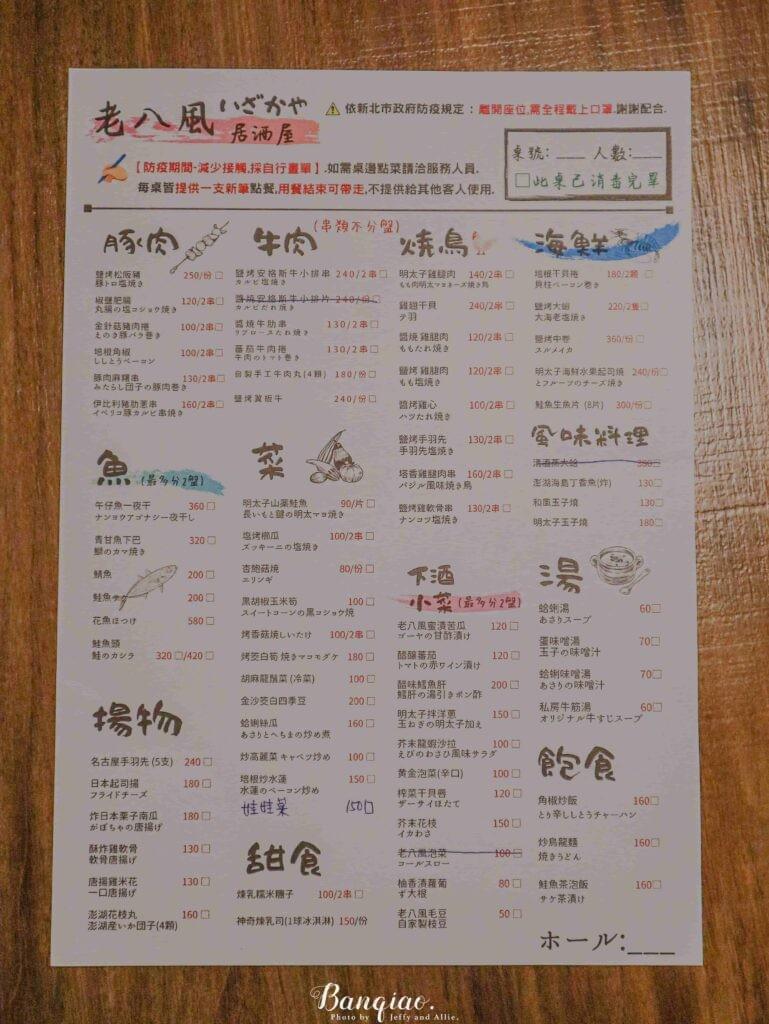 老八風 いざかや
居酒屋
⚠ 依新北市政府防疫規定：離開座位,需全程戴上口罩.謝謝配合.
【防疫期間-減少接觸,採自行畫單】.如需桌邊點菜請洽服務人員.
每桌皆提供一支新筆點餐,用餐結束可帶走,不提供給其他客人使用.
桌號:___ 人數:___
□此桌已消毒完畢
(串類不分盤)
豚肉
鹽烤松阪豬 250/份□
豚トロ塩焼き
椒鹽肥腸 120/2串□
丸腸の塩コショウ焼き
金針菇豬肉捲 100/2串□
えのき豚バラ巻き
培根角椒 100/2串□
ししとうベーコン
豚肉麻糬串 130/2串□
みたらし団子の豚肉巻き
伊比利豬肋蔥串 160/2串□
イベリコ豚カルビ串焼き
牛肉
鹽烤安格斯牛小排串 240/2串□
カルビ塩焼き
醬燒安格斯牛小排片 240/份□
カルビだれ焼き
醬燒牛肋串 130/2串□
リブロースたれ焼き
蕃茄牛肉捲 130/2串□
牛肉のトマト巻き
自製手工牛肉丸(4顆) 180/份□
鹽烤翼板牛 240/份□
燒鳥
明太子雞腿肉 140/2串□
もも肉明太マヨネーズ焼き鳥
雞翅干貝 240/2串□
テ羽
醬燒雞腿肉 120/2串□
ももたれ焼き
鹽烤雞腿肉 120/2串□
もも塩焼き
醬烤雞心 100/2串□
ハツたれ焼き
鹽烤手羽先 130/2串□
手羽先塩焼き
塔香雞腿肉串 160/2串□
バジル風味焼き鳥
鹽烤雞軟骨串 130/2串□
ナンコツ塩焼き
海鮮
培根干貝捲 180/2顆□
貝柱ベーコン巻き
鹽烤大蝦 220/2隻□
大海老塩焼き
鹽烤中卷 360/份□
スルメイカ
明太子海鮮水果起司燒 240/份□
とフルーツのチーズ焼き
鮭魚生魚片 (8片) 300/份□
風味料理
清酒蒸大蛤 350□
澎湖海島丁香魚(炸) 130□
和風玉子燒 130□
明太子玉子燒 180□
魚 (最多分2盤)
午仔魚一夜干 360□
ナンヨウアゴナシ一夜干し
青甘魚下巴 320□
鰤のカマ焼き
鯖魚 200□
鮭魚 200□
花魚ほつけ 580□
鮭魚頭
鮭のカシラ 320□/420□
菜
明太子山藥鮭魚 90/片□
長いもと鮭の明太マヨ焼き
塩烤櫛瓜 100/2串□
ズッキーニの塩焼き
杏鮑菇燒 80/份□
エリンギ
黒胡椒玉米筍 100□
スイートコーンの黒コショウ焼
烤香菇焼しいたけ 100/2串□
烤茭白筍 焼きマコモダケ 180□
胡麻龍鬚菜 (冷菜) 100□
金沙茭白四季豆 200□
蛤蜊絲瓜 160□
あさりとへちまの炒め煮
炒高麗菜 キャベツ炒め 100□
培根炒水蓮 150□
水蓮のベーコン炒め
娃娃菜 150□
下酒
小菜 (最多分2盤)
老八風蜜漬苦瓜 120□
ゴーヤの甘酢漬け
醋釀蕃茄 120□
トマトの赤ワイン漬け
醋味鱈魚肝 200□
鱈肝の湯引きポン酢
明太子拌洋蔥 150□
玉ねぎの明太子加え
芥末龍蝦沙拉 100□
えびのわさび風味サラダ
黃金泡菜(辛口) 100□
榨菜干貝唇 120□
ザーサイほたて
芥末花枝 150□
イカわさ
老八風泡菜 100□
コールスロー
柚香漬蘿蔔 80□
ず大根
老八風毛豆 50□
自家製枝豆
湯
蛤蜊湯 60□
あさりスープ
蛋味噌湯 70□
玉子の味噌汁
蛤蜊味噌湯 70□
あさりの味噌汁
私房牛筋湯 60□
オリジナル牛すじスープ
飽食
角椒炒飯 160□
とり辛ししとうチャーハン
炒烏龍麵 160□
焼きうどん
鮭魚茶泡飯 160□
サケ茶漬け
揚物
名古屋手羽先 (5支) 240□
日本起司揚 180□
フライドチーズ
炸日本栗子南瓜 180□
がぼちゃの唐揚げ
酥炸雞軟骨 130□
軟骨唐揚げ
唐揚雞米花 130□
一口唐揚げ
澎湖花枝丸 160□
澎湖産いか団子(4顆)
甜食
煉乳糯米糰子 100/2串□
神奇煉乳司(1球冰淇淋) 150/份
ホール:___
Banqiao.
Photo by Jeffy and Allie.